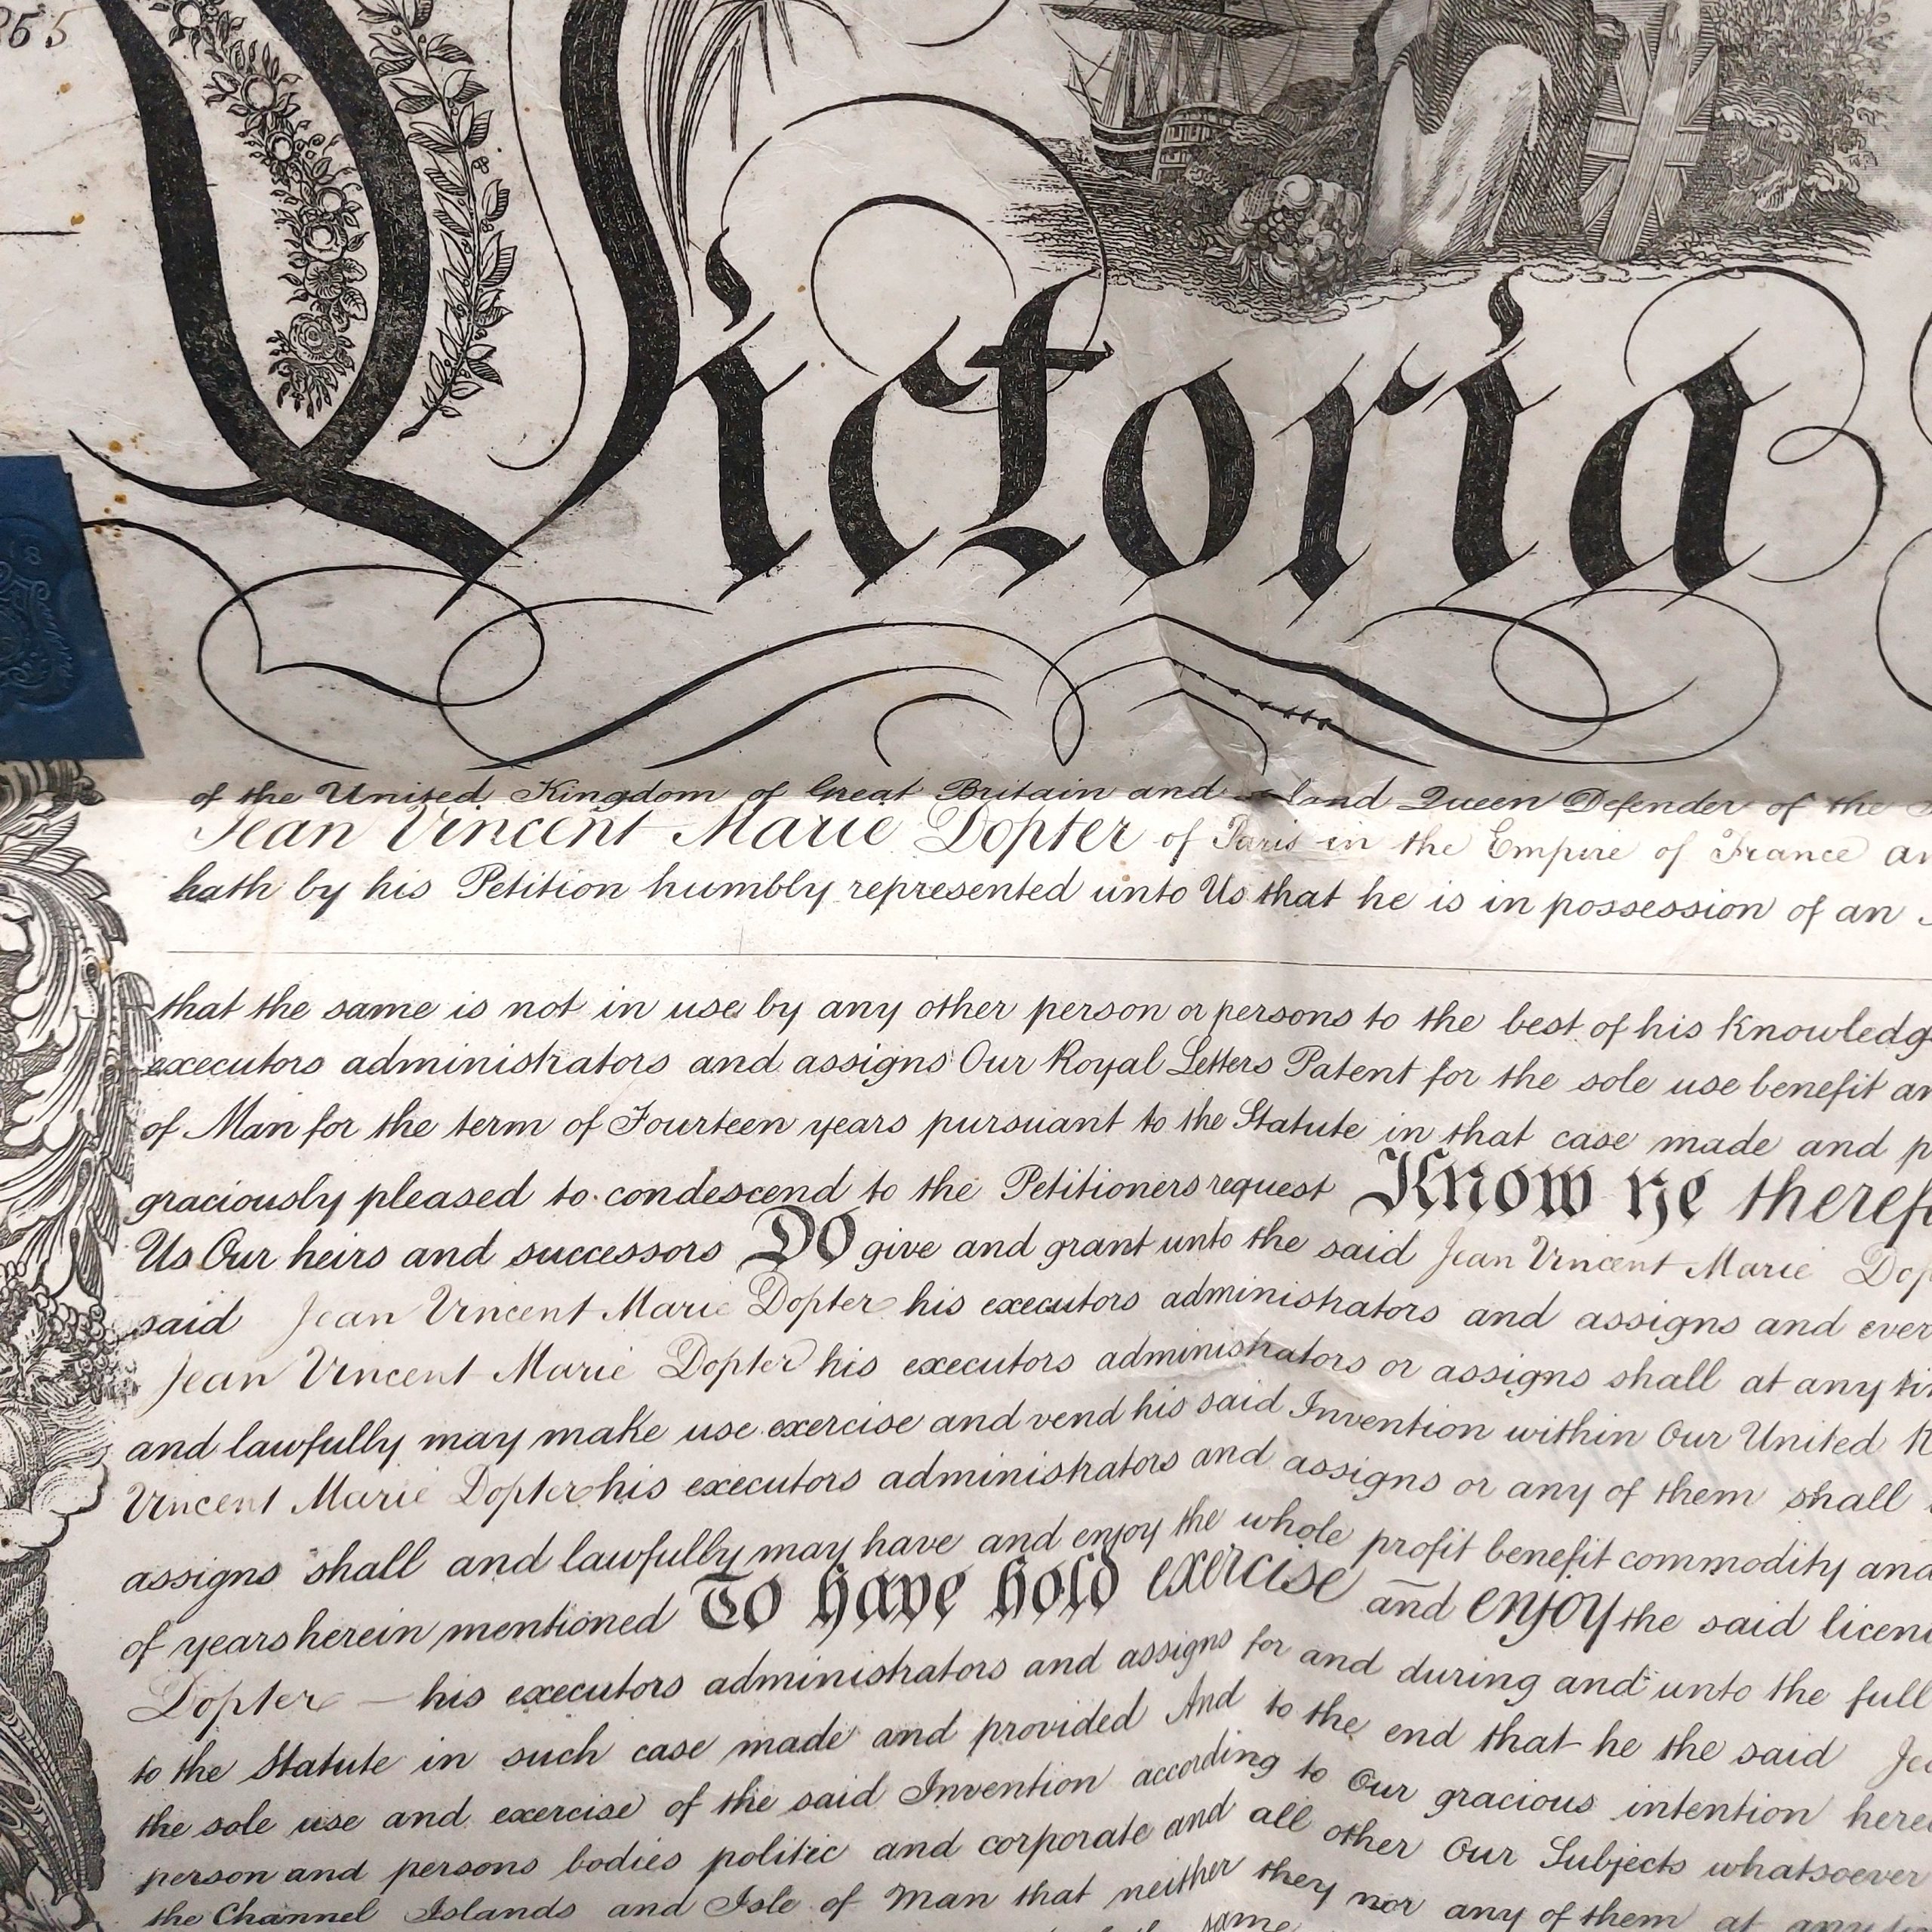 Victoria
of the United Kingdom of Great Britain and land Queen Defender of the
Jean Vincent Marie Dopter of Paris in the Empire of France
hath by his Petition humbly represented unto Us that he is in possession of an
that the same is not in use by any other person or persons to the best of his knowledg
executors administrators and assigns Our Royal Letters Patent for the sole use benefit an
of Man for the term of Fourteen years pursuant to the Statute in that case made and p
graciously pleased to condescend to the Petitioners request Know Ye theref
Us Our heirs and successors Do give and grant unto the said Jean Vincent Marie Dop
said Jean Vincent Marie Dopter his executors administrators and assigns and ever
Jean Vincent Marie Dopter his executors administrators or assigns shall at any ti
and lawfully may make use exercise and vend his said Invention within Our United K
Vincent Marie Dopter his executors administrators and assigns or any of them shall
assigns shall and lawfully may have and enjoy the whole profit benefit commodity and
of years herein mentioned To have hold exercise and enjoy the said licen
Dopter — his executors administrators and assigns for and during and unto the full
to the Statute in such case made and provided And to the end that he the said Je
the sole use and exercise of the said Invention according to Our gracious intention here
person and persons bodies politic and corporate and all other Our Subjects whatsoever
the Channel Islands and Isle of Man that neither they nor any of them at any
same